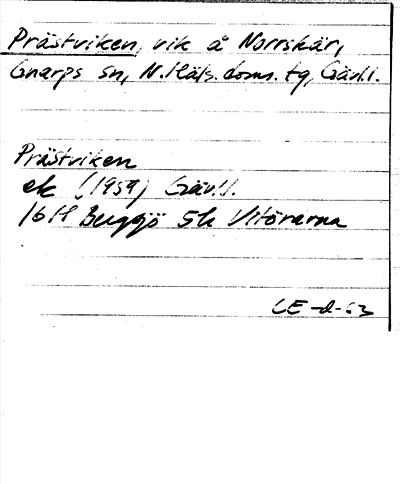 Prästviken, vik å Norrskär,
Gnarps sn, N. Häls. doms. tg, Gävl.l.
Prästviken
ek (1959) Gävl.l.
16 H Bergsjö 5h Vitörarna
CE-d-63